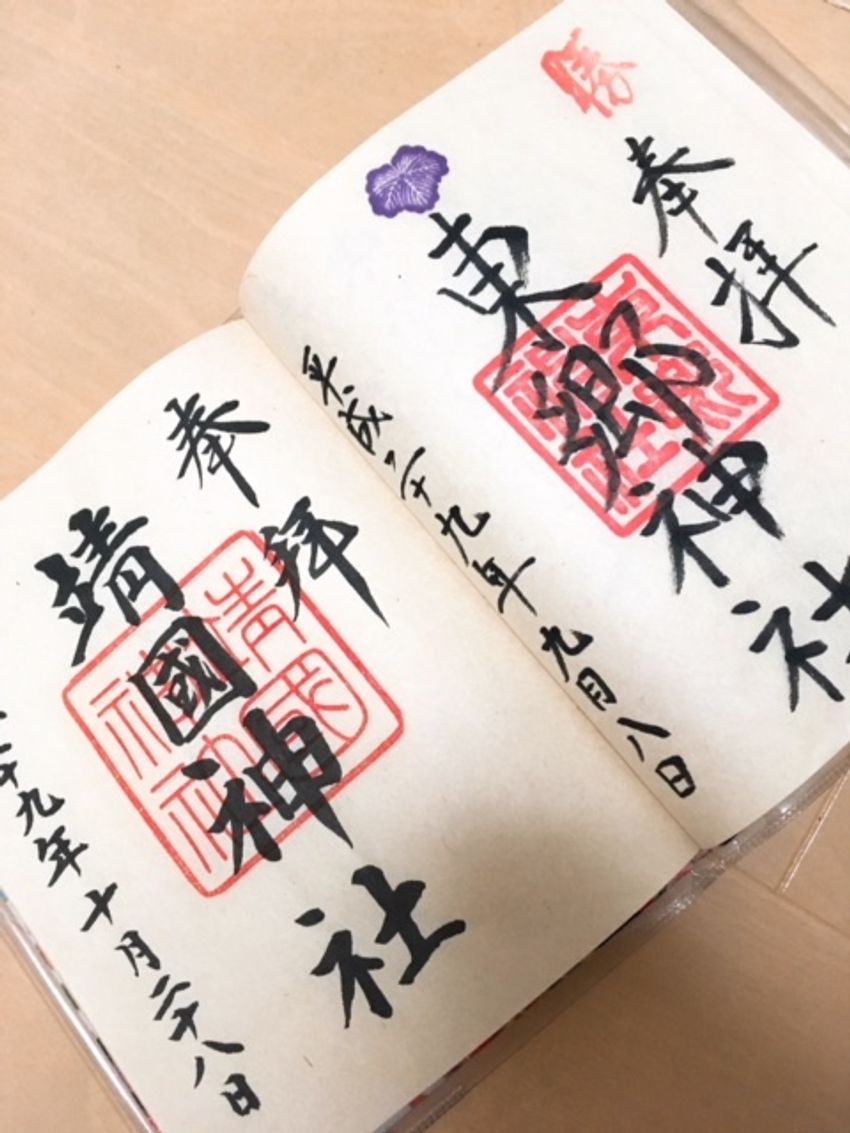 勝
奉拝
東郷神社
平成二十九年九月八日
奉拝
靖國神社
二十九年十月二十八日
靖國神社